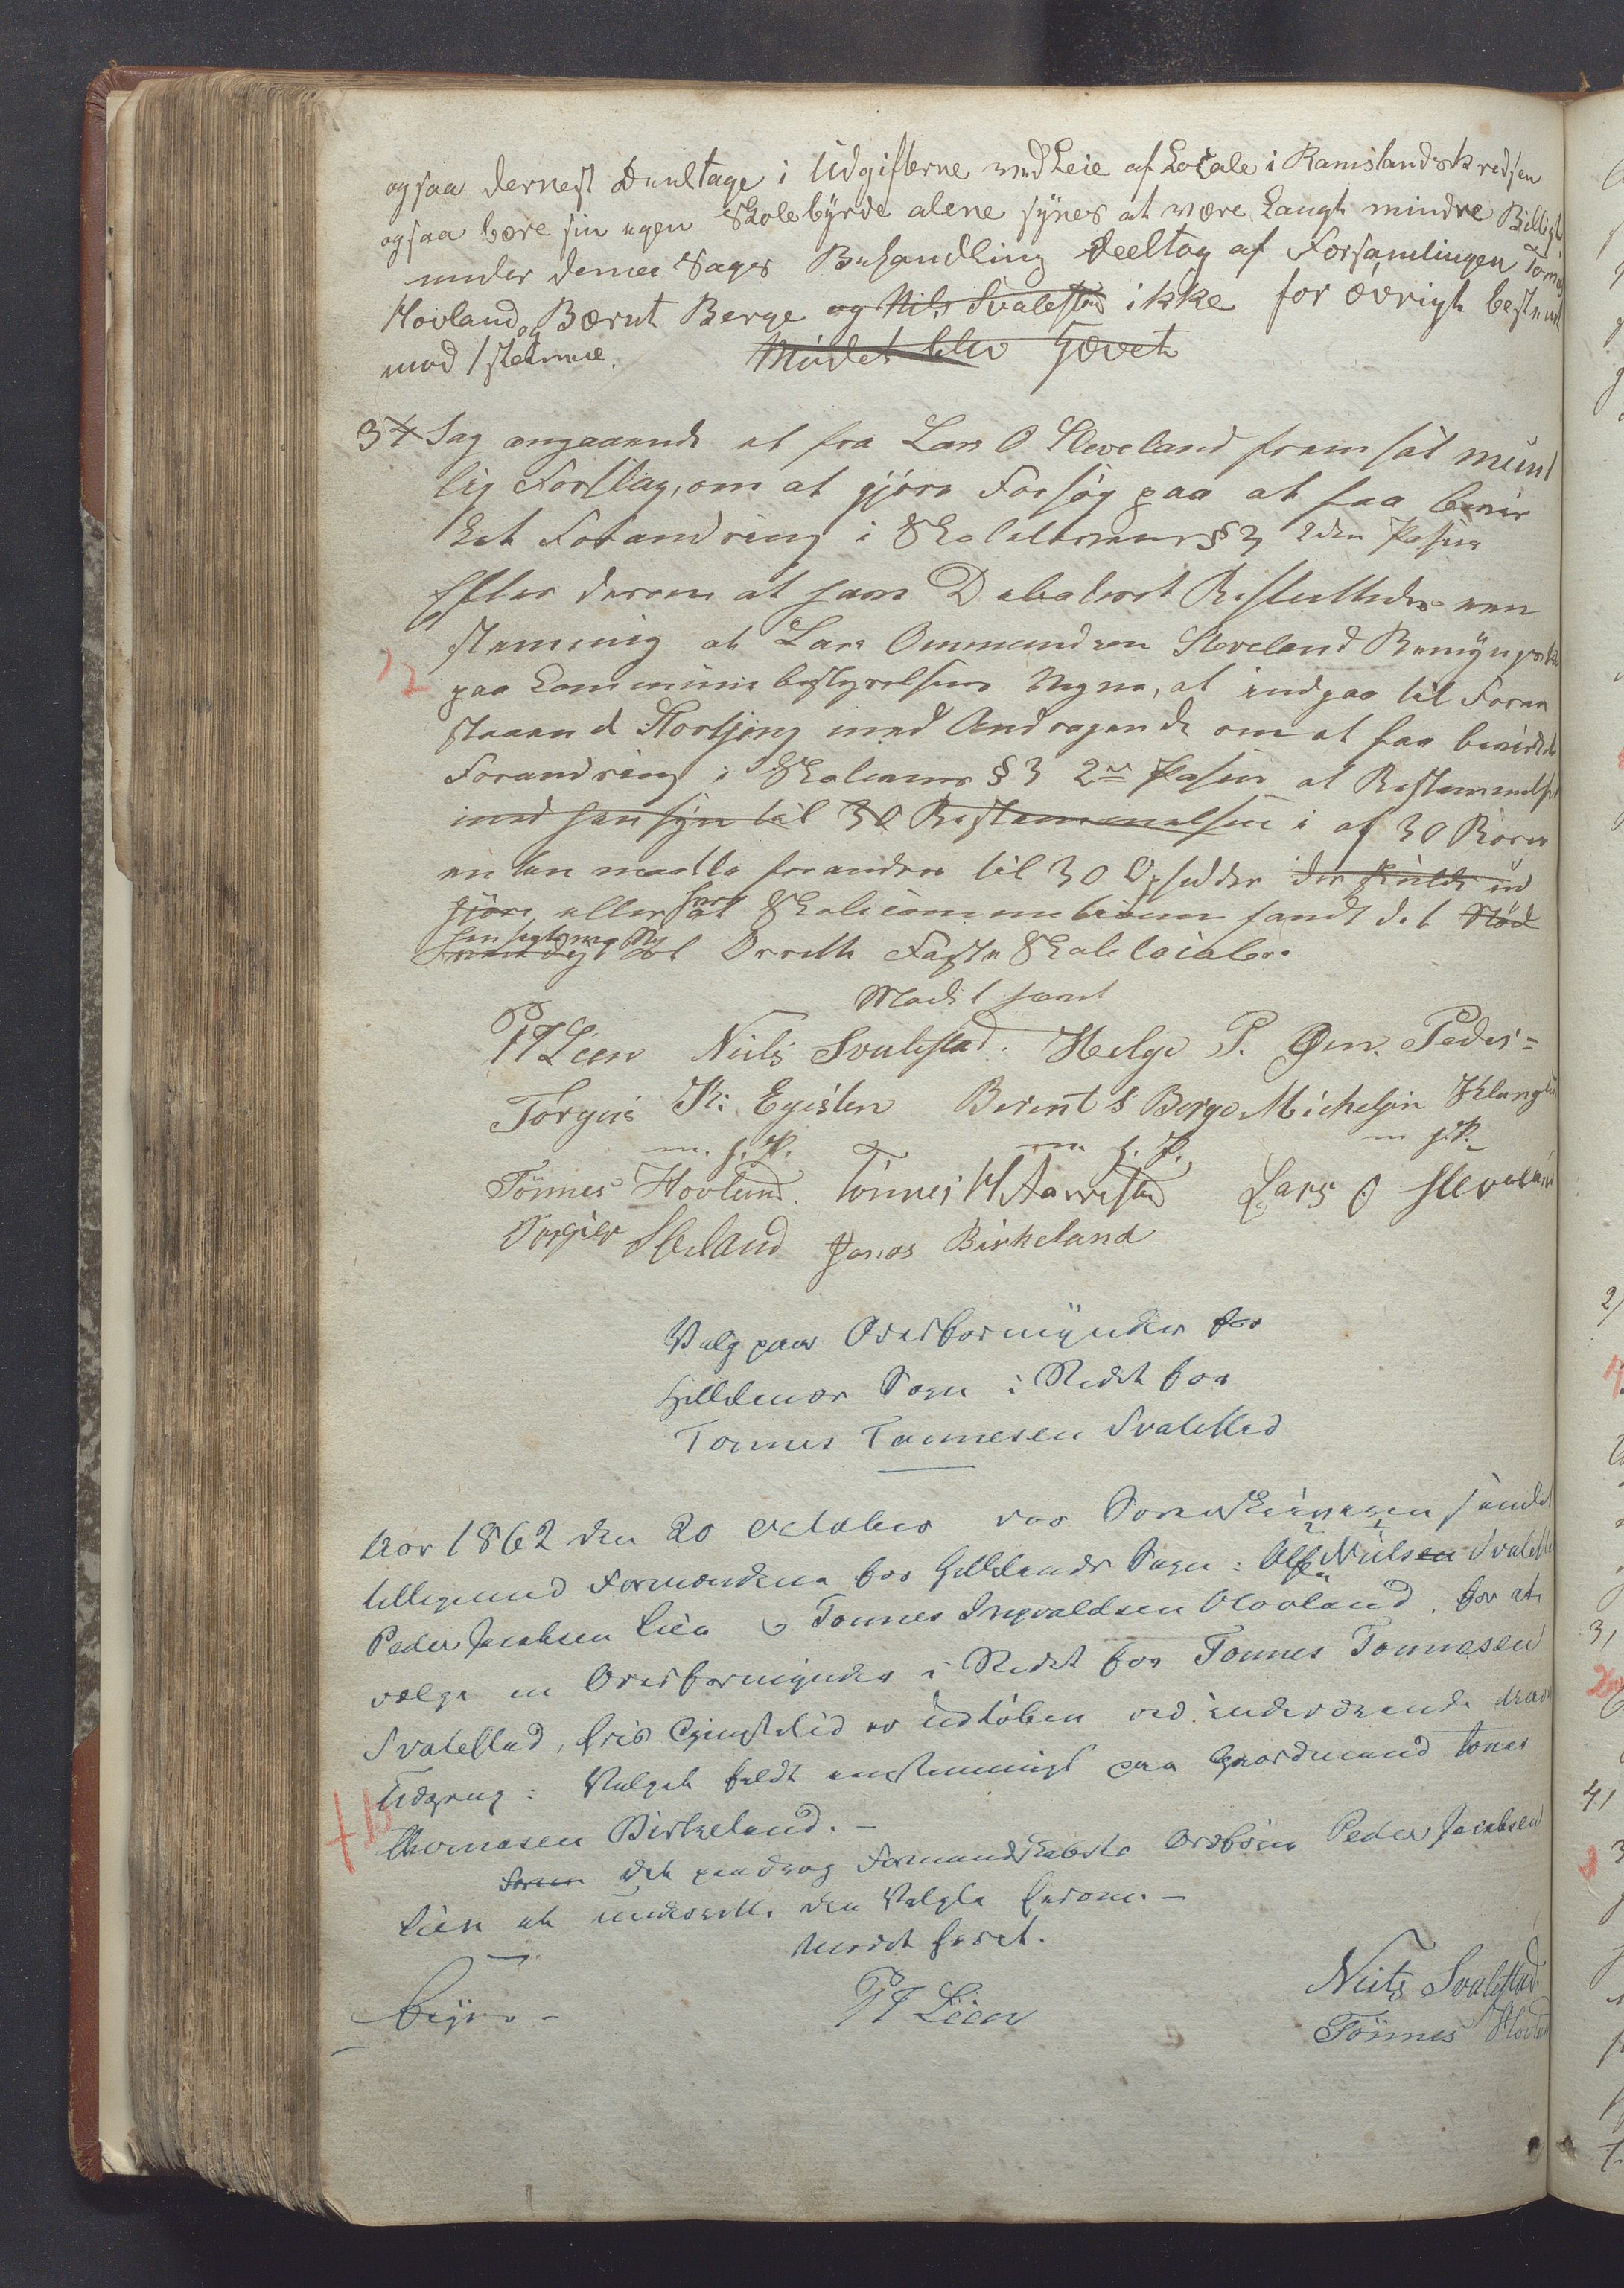 ogsaa dernest Deeltage i Udgifterne ved Leie af Locale i Ramslandskredsen
ogsaa bære sin egen Skolebyrde alene synes at være Langt mindre Billigt
under denne Sags Behandling deeltog af Forsamlingen Tønnes
Hovland og Bærnt Berge og Nils Svalestad ikke for øvrigt bestemt
mod 1 stemme. Mødet blev Hævet
3 Sag angaaende et fra Lars O Sleveland fremsat mund
lig Forslag, om at gjøre Forsøg paa at faa bevir
ket Forandring i Skoleloven § 3 2den Passus
Efter derom at have Debateret Besluttedes een
stemmig at Lars Ommundsen Sleveland Bemyndiges
paa Communebestyrelsens Vegne, at indgaa til Foren
staaend Storthing med Andragende om at faa bevirket
Forandring i Skolelovens § 3 2den Passus at Bestemmelsen
med hensyn til 30 Bestemmelsen i af 30 Børn
enten maatte forandres til 30 Opsidder der skulde ud
gjøre, eller hvor at Skolecommissionen fandt det Nød
hensigtsmæssig at Oprette Faste Skolelocaler.
Mødet hævet
PJ Lien Niels Svalestad. Helge P. Øen. Peder
Torgeis K: Egelien Berent S Berge Michel Klungland
m. f. P. m. f. P. m f. P.
Tönnes Hovland. Tönnes H Aarrestad Lars O Sleveland
Sleland Jonas Birkeland
Valg paa Overformynder for
Hellelands Sogn i Stedet for
Tønnes Tønnesen Svalestad
Aar 1862 den 20 October var Sorenskriveren samlet
tilligemed Formændene for Hellelands Sogn: Niels Svalestad
Peder Jacobsen Lien og Tønnes Ingvaldsen Hovland, for at
vælge en Overformynder i Stedet for Tønnes Tønnesen
Svalestad, hvis Tjenestetid er udløben ved indeværende Aars
Udgang: Valget faldt eenstemmigt paa Gaardmand Jonas
Thomasen Birkeland. —
Det paadrog Formandskabets Ordfører Peder Jacobsen
Lien at underrette den Valgte herom. —
Mødet hævet.
Feyer PJ Lien Niels Svalestad
Tönnes Hovland